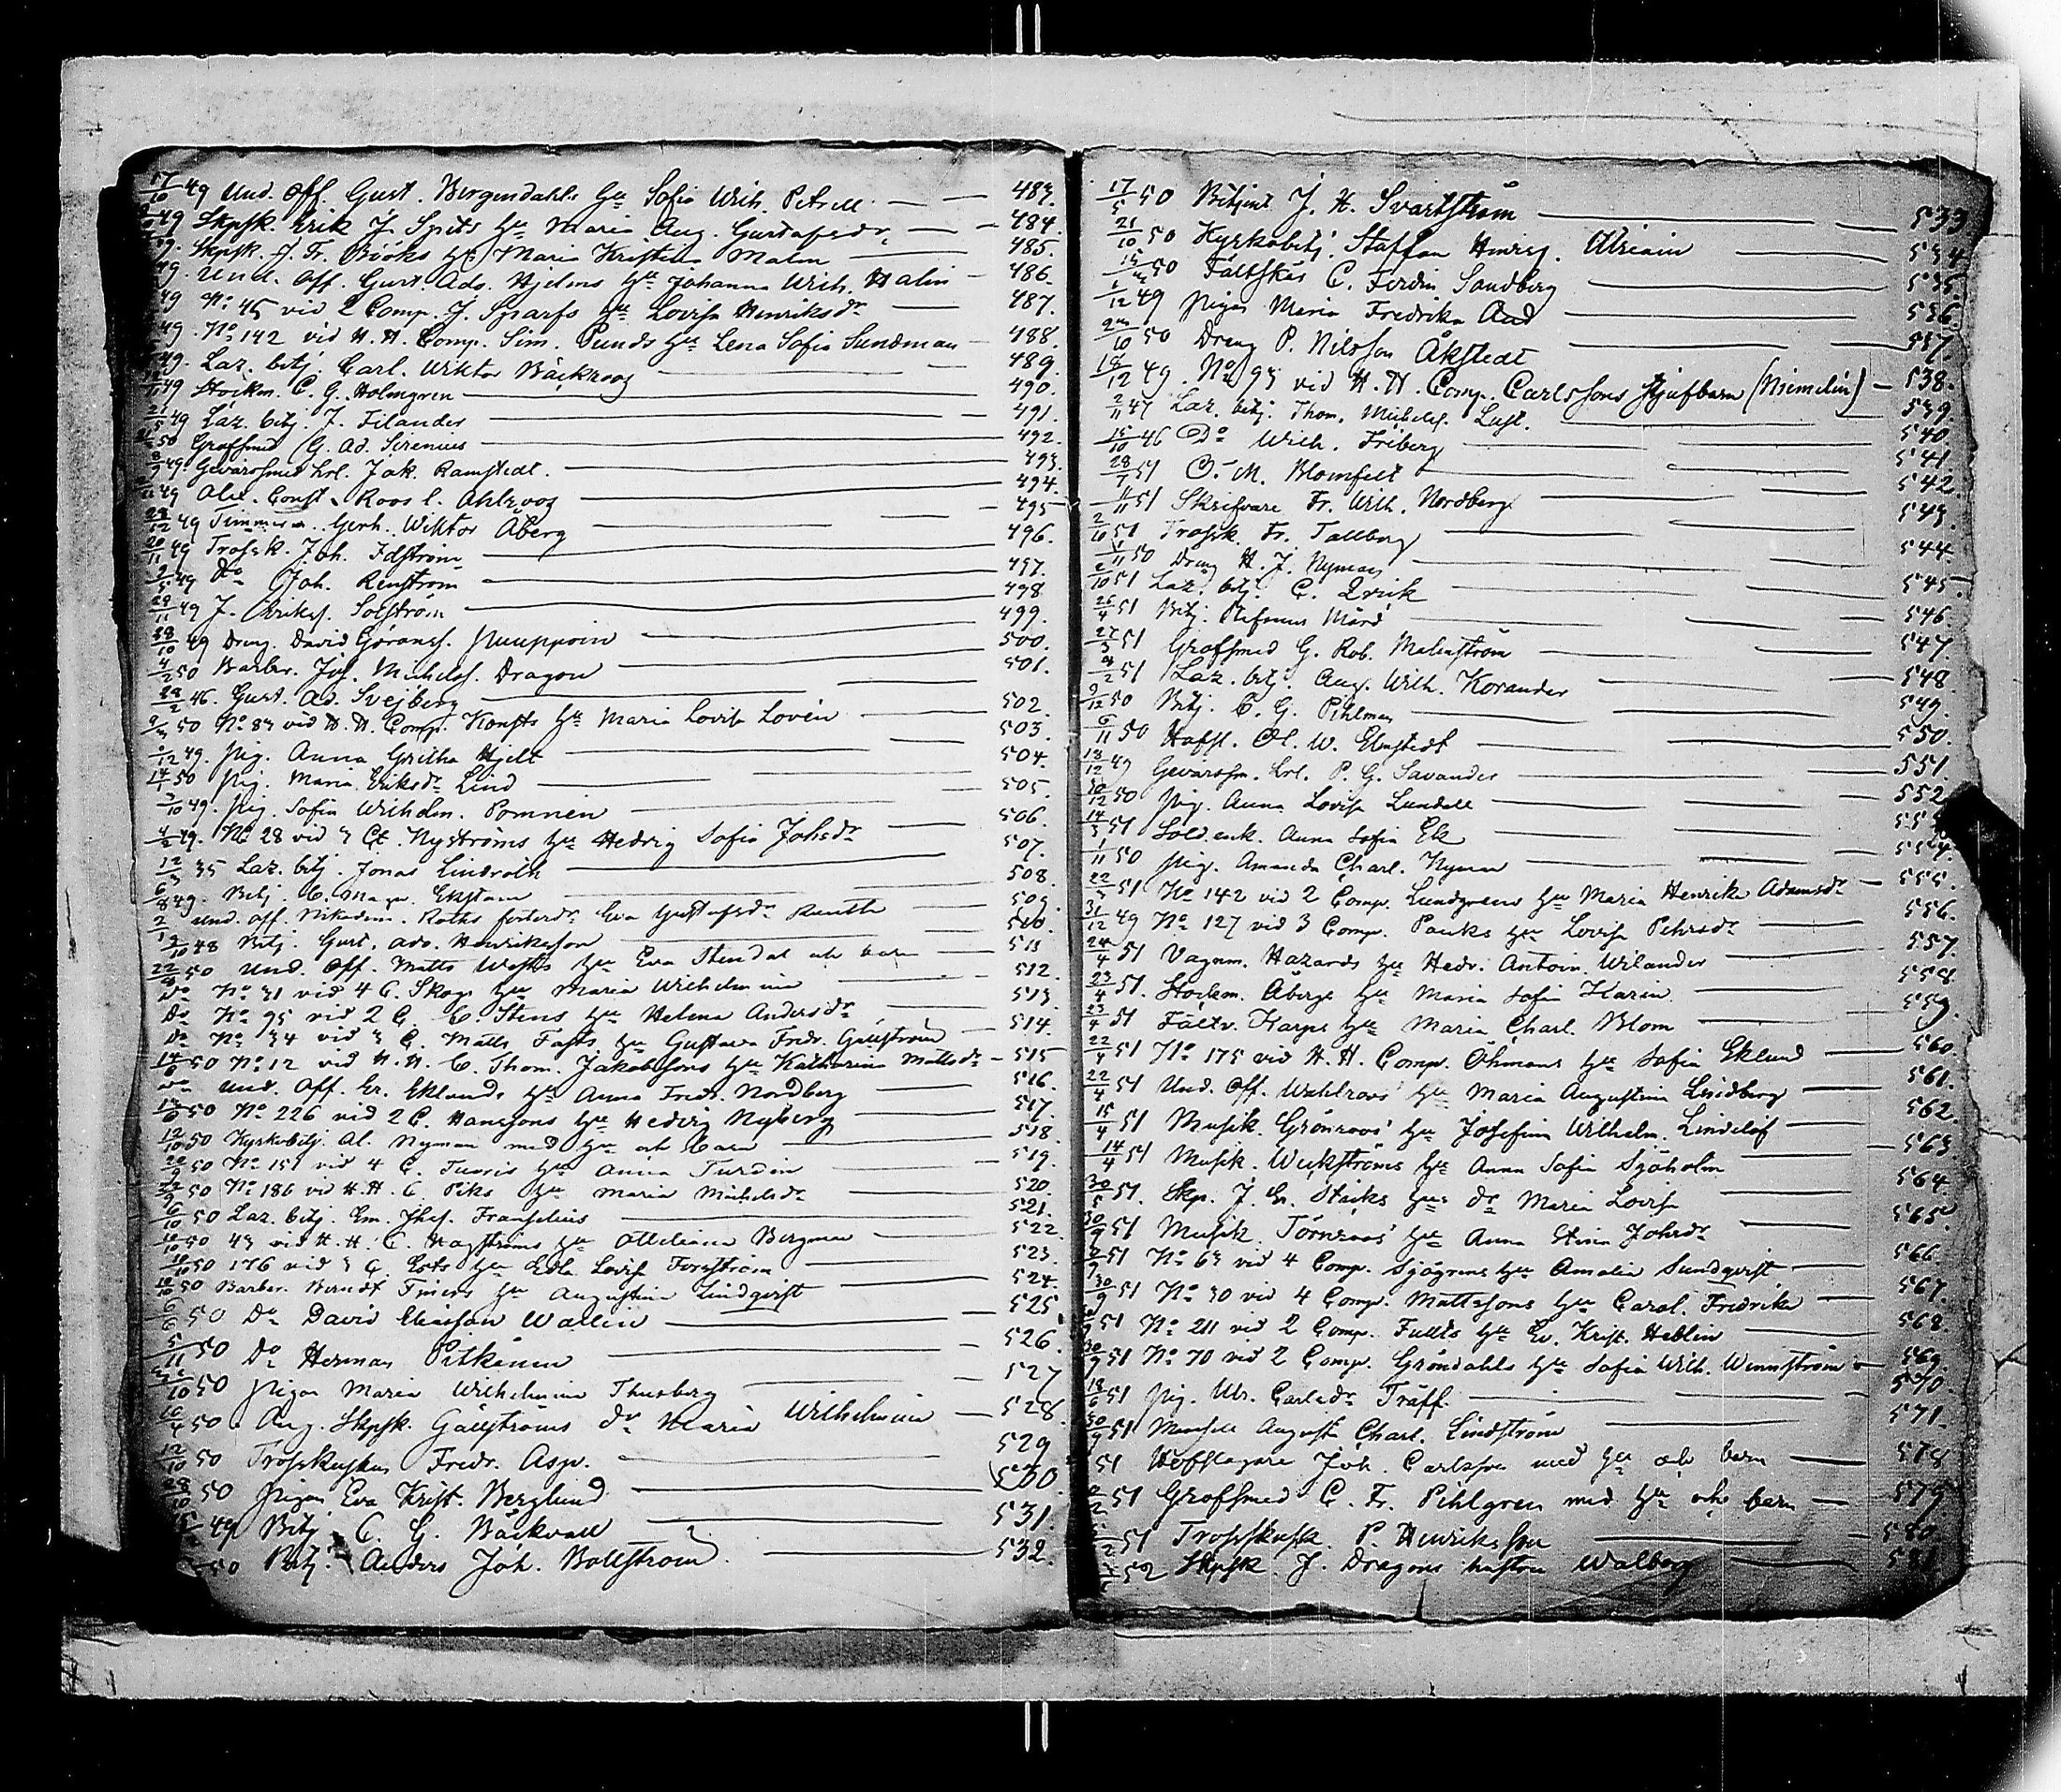 17/10 49 Und. Off. Gust. Bergendahls hu Sofia Wilh. Petrell 483.
49 Skpsk. Erik J. Spets hu Maria Aug. Gustafsdr 484.
49. Skpsk. J. Fr. Bööks hu Maria Kristina Malm 485.
49. Und. Off. Gust. Ado. Hjelms hu Johanna Wilh. Halin 486.
49 No 45 vid 2 Comp. J. Sparfs hu Lovisa Henriksdr 487.
49. No 142 vid H. H. Comp. Sim. Punds hu Lena Sofia Sundman 488.
49. Laz. betj. Carl. Wiktor Bäckroos 489.
49 Stockm. C. G. Holmgren 490.
49 Laz. betj. J. Filander 491.
50 Grofsmed G. Ad. Sirenius 492.
8/9 49. Gevärssmed lärl. Jak. Ramstedt. 493.
49 Alex. Const. Roos l. Ahlroos 494.
28/12 49 Timmerm. Gerh. Wiktor Åberg 495
20/11 49 Trossk. Joh. Idström 496.
49 Do Joh. Renström 497.
29/11 49 J. Erikss. Solström 498
28/10 49 Dreng David Göranss. Puuppoin 499.
4/2 50 Barber. Joh. Michelss. Dragon 500.
29/2 46. Gust. Ad. Svejberg 501.
9/3 50 No 83 vid H. H. Comp. Konsts hu Maria Lovisa Lovén 502.
/12 49. Pig. Anna Gretha Hjelt 503.
14/1 50 Pig. Maria Eriksdr Lind 504.
3/10 49. Pig. Sofia Wilhelm. Pomnén 505.
4/2 49. No 28 vid 3 Ct. Nyströms hu Hedvig Sofia Johsdr 506.
12/3 35 Laz. betj. Jonas Lindroth 507.
6/8 49. Betj. C. Magn. Ekstam 508.
2/1 Und. Off. Nikodem. Roths fosterdr Eva Gustafsdr Ruuth 509.
3/10 48 Betj. Gust. Ado. Henriksson 510.
22/ 50 Und. Off. Matts Wests hu Eva Stendal och barn 511
Do No 31 vid 4 C. Skogs hu Maria Wilhelmina 512.
Do No 95 vid 2 C. C. Stens hu Helena Andersdr 513.
Do No 34 vid 3 C. Matts Fasts hu Gustava Fredr. Gällström 514.
14/6 50 No 12 vid H. H. C. Thom. Jakobssons hu Katharina Mattsdr 515
Do Und. Off. Er. Eklunds hu Anna Fredr. Nordberg 516.
50 No 226 vid 2 C. Hanssons hu Hedvig Nyberg 517.
12/10 50 Kyrkobetj. Al. Nyman med hu och barn 518.
20/9 50 No 151 vid 4 C. Tuoris hu Anna Turdin 519.
50 No 186 vid H. H. C. Piks hu Maria Michelsdr 520.
6/10 50 Laz. betj. Em. Jhof. Franselius 521.
50 43 vid H. H. C. Hagströms hu Ottiliana Bergman 522.
50 176 vid 3 C. Ests hu Edla Lovisa Forsström 523.
50 Barber. Berndt Finers hu Augustina Lindqvist 524.
6/6 50 Do David Eliasson Wallin 525
5/11 50 Do Herman Pitkänen 526.
/10 50 Pigan Maria Wilhelmina Thusberg 527
50. Aug. Skpsk. Gällströms dr Maria Wilhelmina 528.
12/10 50 Trosskusken Fredr. Asp. 529
50 Pigan Eva Krist. Berglund 530.
49 Betj. C. G. Bäckvall 531.
50 Betj. Anders Joh. Bollström 532.
17/5 50 Betjent J. H. Svartström 533
21/10 50 Kyrkobetj. Staffan Henriks. 534
50 Fältskär C. Ferdin Sandberg 535
1/12 49 Pigan Maria Fredrika And 536
/10 50 Dreng P. Nilsson Åkstedt 537.
18/12 49. No 93 vid H. H. Comp. Carlssons styfbarn (Niemelin) 538.
2/11 47 Laz. betj. Thom. Michelss. Lust. 539
15/10 46 Do Wilh. Friberg 540
28/7 51 O. M. Blomfelt 541
11/11 51 Skrifvare Fr. Wilh. Nordberg 542
2/10 51 Trossk. Fr. Tallberg 543.
1/11 50 Dreng H. J. Nyman 544.
2/10 51 Laz. betj. C. Qvick 545.
26/4 51 Betj. Stefanus Mård 546.
27/3 51 Grofsmed G. Rob. Malmström 547.
/2 51 Laz. betj. Aug. Wilh. Korander 548
9/12 50 Betj. C. G. Pihlman 549.
6/11 50 Hofsl. Ol. W. Elmstedt 550.
13/12 49 Gevärssm. lärl. P. G. Savander 551
30/12 50 Pig. Anna Lovisa Lundell 552
14/3 51 Sold. enk. Anna Sofia Ek 553
1/11 50 Pig. Amanda Charl. Nyman 554.
22/3 51 No 142 vid 2 Comp. Lundgrens hu Maria Henrika Adamsdr 555.
31/12 49 No 127 vid 3 Comp. Pauks hu Lovisa Pehrsdr 556.
24/4 51 Vagnm. Hazards hu Hedv. Antoin. Wilander 557.
23/4 51. Stockm. Åbergs hu Maria Sofia Karin. 558.
23/4 51 Fältv. Karps hu Maria Charl. Blom 559.
22/4 51 No 175 vid H. H. Comp. Öhmans hu Sofia Eklund 560.
22/4 51 Und. Off. Wahlroos' hu Maria Augustina Lindberg 561.
15/4 51 Musik. Grönroos' hu Josefina Wilhelm. Lindelöf 562.
14/4 51 Musik. Weckströms hu Anna Sofia Sjöholm 563.
30/5 51. Skp. J. Er. Starks hus dr Maria Lovisa 564
30/9 51 Musik. Törnroos' hu Anna Stina Johsdr 565.
51 No 63 vid 4 Comp. Sjögrens hu Amalia Sundqvist 566.
30/9 51 No 30 vid 4 Comp. Mattssons hu Carol. Fredrika 567.
51 No 211 vid 2 Comp. Fullts hu Ev. Krist. Hellin 568.
30/9 51 No 70 vid 2 Comp. Gröndahls hu Sofia Wilh. Wennström 569.
18/6 51 Pig. Ulr. Carlsdr Träff. 570.
30/9 51 Mamsell Augusta Charl. Lindström 571.
51 Hofslagare Joh. Carlsson med hu och barn 578
51 Grofsmed C. Fr. Pihlgren med hu och barn 579
51 Trosskusk. P. Henriksson 580
52 Skpsk. J. Dragons hustru Walborg